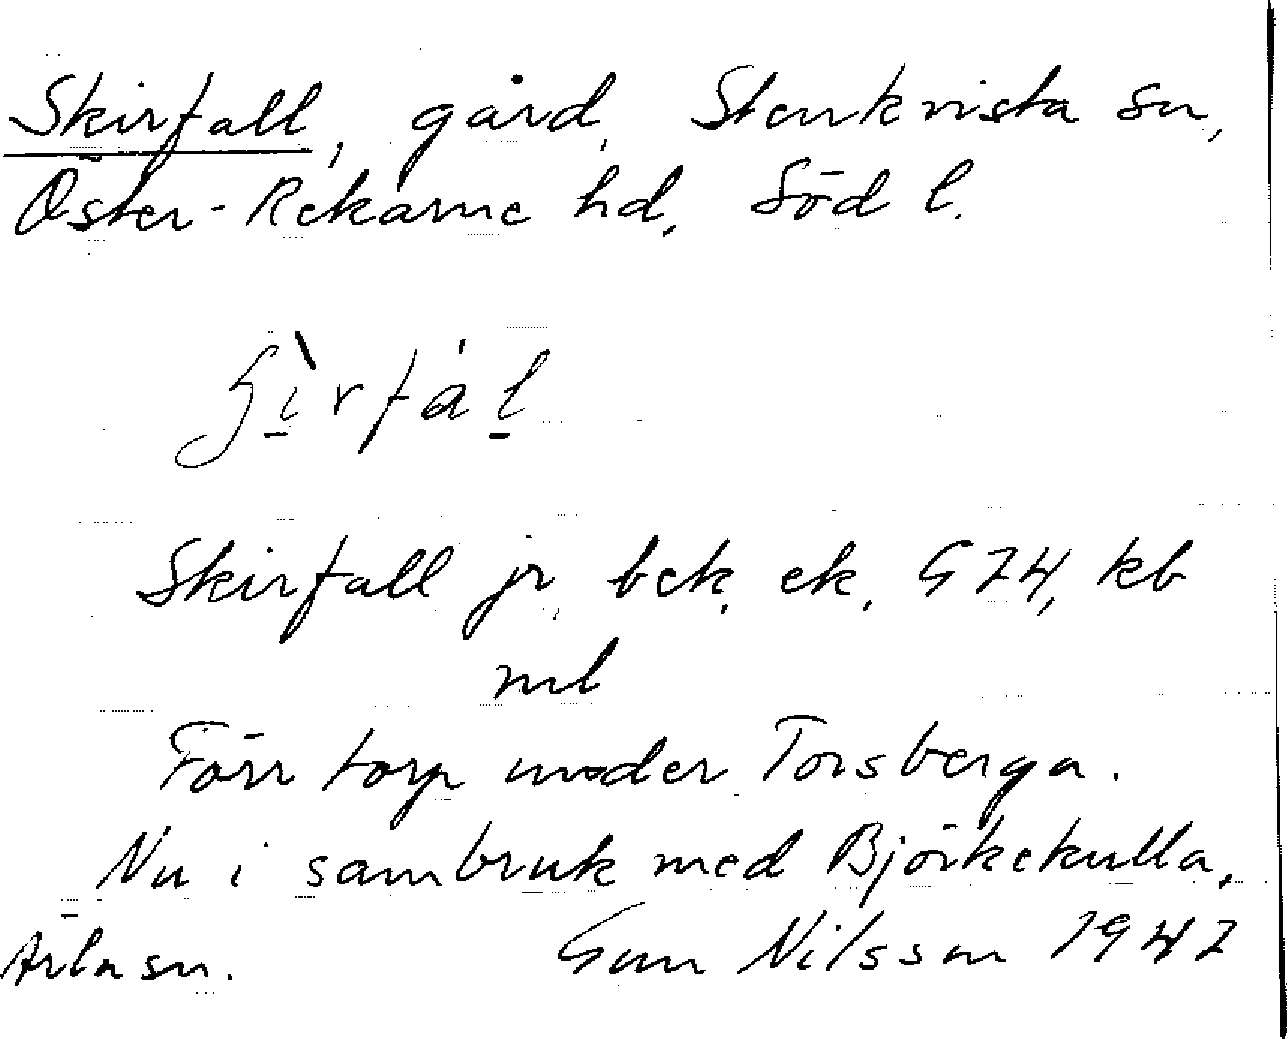 Skirfall, gård, Stenkvista sn,
Öster-Rekarne hd, Söd l.
Skirfall jr, bek, ek, G74, kb
ml
Förr torp under Torsberga.
Nu i sambruk med Björkekulla,
Ärla sn. Gun Nilsson 1947